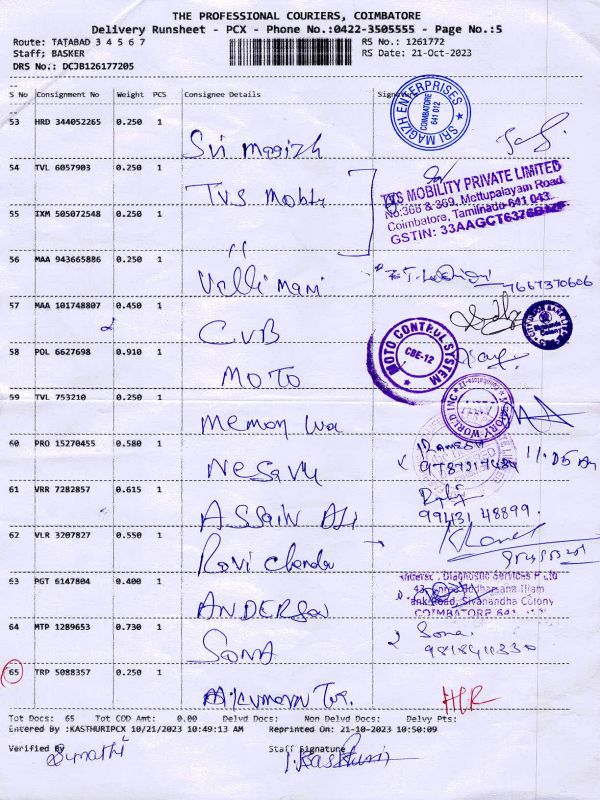 THE PROFESSIONAL COURIERS, COIMBATORE
Delivery Runsheet - PCX - Phone No.:0422-3505555 - Page No.:5
Route: TATABAD 3 4 5 6 7 RS No.: 1261772
Staff; BASKER RS Date: 21-Oct-2023
DRS No.: DCJB126177205
S No Consignment No Weight PCS Consignee Details
53 HRD 344052265 0.250 1 Sri Magizh
SRI MAGIZH ENTERPRISES COIMBATORE 641 012
54 TVL 6057903 0.250 1 TVS Mobty
TVS MOBILITY PRIVATE LIMITED
No:368 & 369, Mettupalayam Road
Coimbatore, Tamilnadu-641 043.
55 IXM 505072548 0.250 1 "
56 MAA 943665886 0.250 1 Valli mani
7667370606
57 MAA 101748807 0.450 1 CUB
58 POL 6627698 0.910 1 MOTO
MOTO CONTROL SYSTEM CBE-12
59 TVL 753210 0.250 1 Memory wo
60 PRO 15270455 0.580 1 Nesavu
RAMESH
11.05 AM
61 VRR 7282857 0.615 1 ASSAIN ALI
99431 48899.
62 VLR 3207827 0.550 1 Ravi Chandu
63 PGT 6147804 0.400 1 ANDERSON
Diagnostic Services P Ltd
Road, Sivanandha Colony
COIMBATORE 641
64 MTP 1289653 0.730 1 SONA
Sona
65 TRP 5088357 0.250 1
Tot Docs: 65 Tot COD Amt: 0.00 Delvd Docs: Non Delvd Docs: Delvy Pts:
Entered By :KASTHURIPCX 10/21/2023 10:49:13 AM Reprinted On: 21-10-2023 10:50:09
Verified By Staff Signature